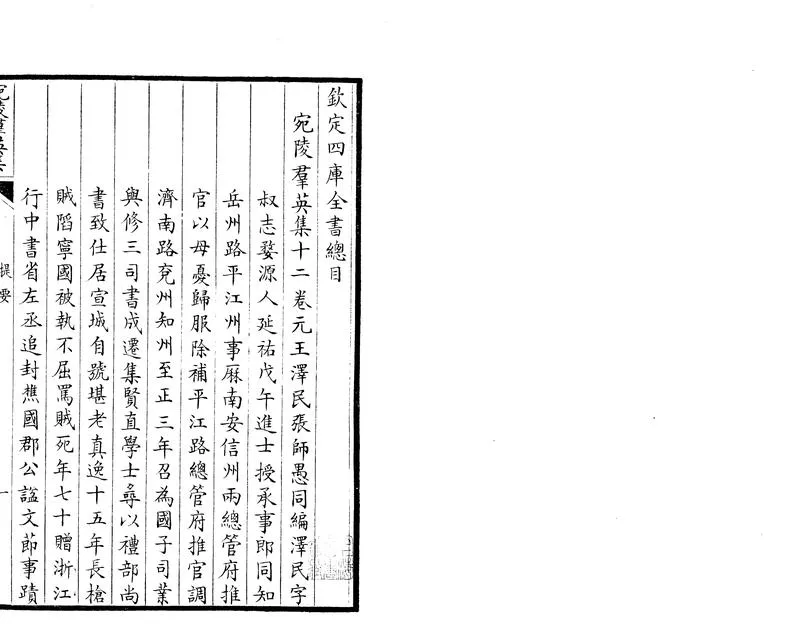 欽定四庫全書總目
宛陵羣英集十二卷元王澤民張師愚同編澤民字
叔志婺源人延祐戊午進士授承事郎同知
岳州路平江州事厤南安信州兩總管府推
官以母憂歸服除補平江路總管府推官調
濟南路兗州知州至正三年召為國子司業
與修三司書成遷集賢直學士尋以禮部尚
書致仕居宣城自號堪老真逸十五年長槍
賊䧟寧國被執不屈罵賊死年七十贈浙江
行中書省左丞追封譙國郡公諡文節事蹟
宛陵羣英集
提要
一